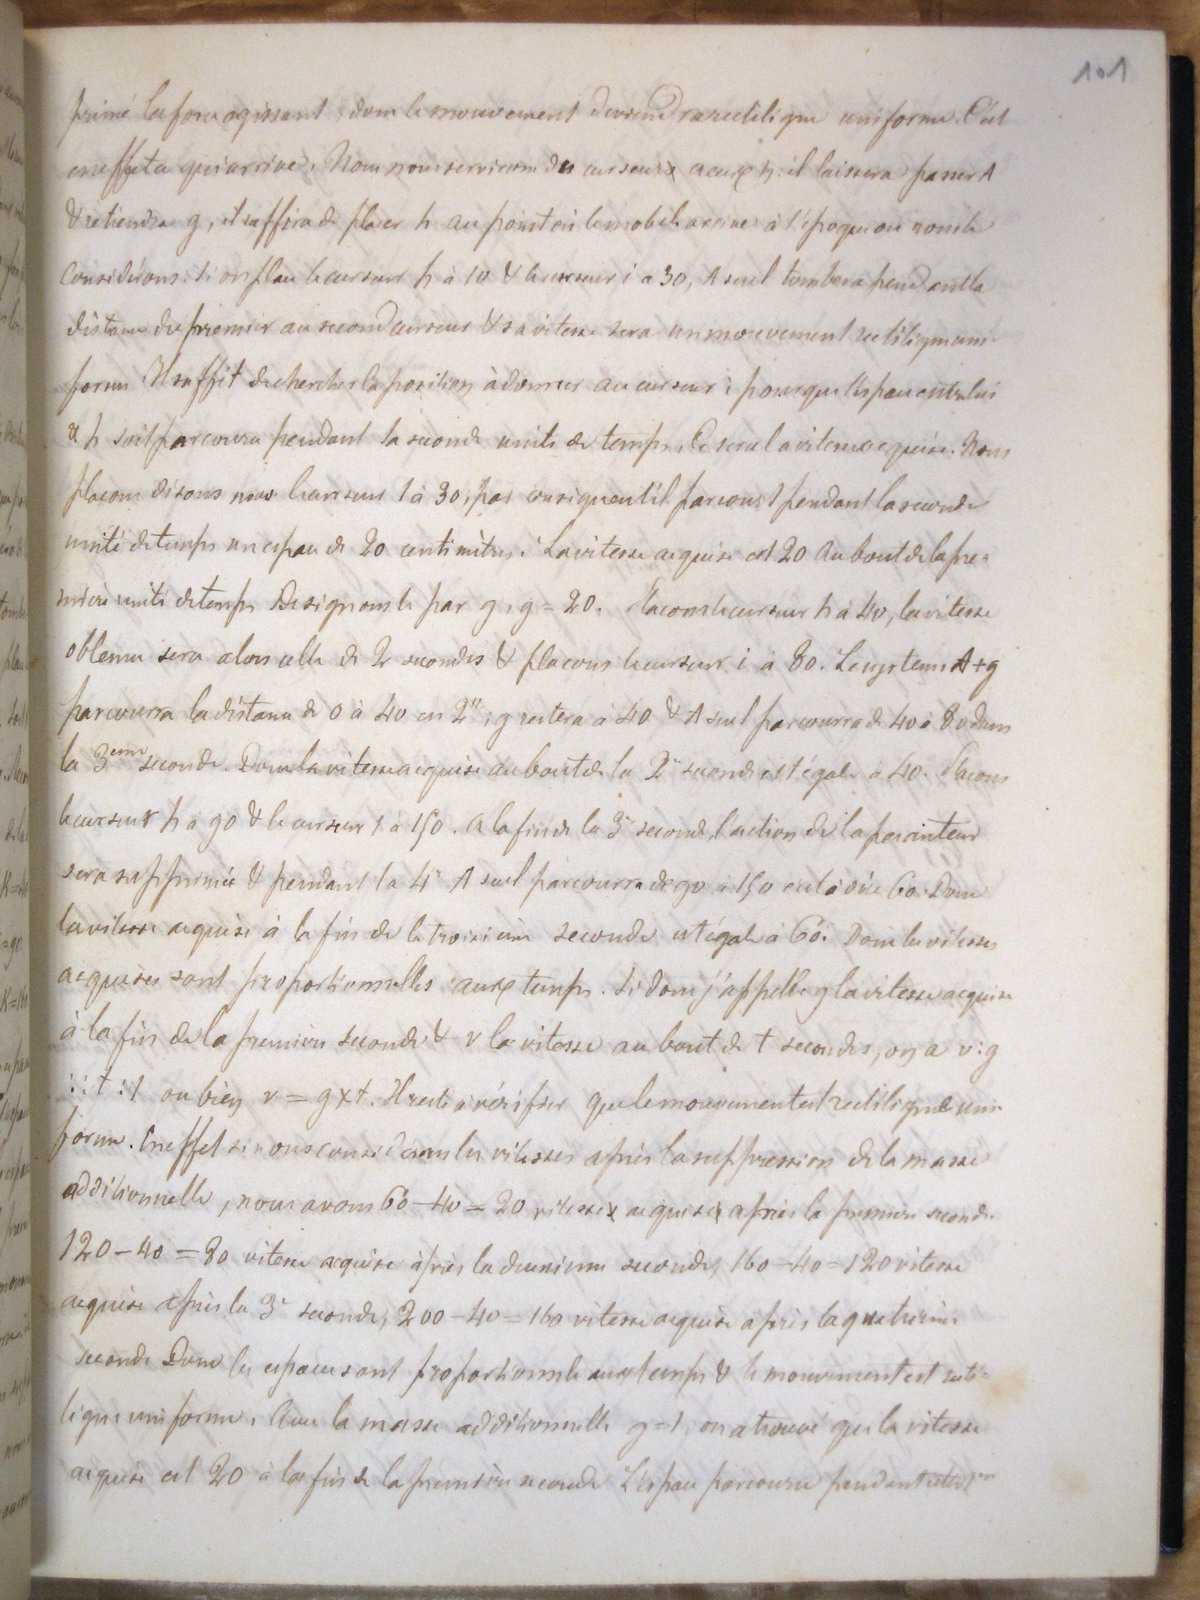 101
primé la force agissant, donc le mouvement deviendra rectiligne uniforme. C'est
en effet ce qui arrive. Nous nous servirons du curseur h: il laissera passer A
& retiendra g, il suffira de placer h au point où le mobile arrive à l'époque où nous le
considérons. Si on place le curseur h à 10 & le curseur i à 30, A seul tombera pendant la
distance du premier au second curseur & sa vitesse sera un mouvement rectiligne uni-
forme Il suffit de chercher la position à donner au curseur i pour que l'espace entre lui
& h soit parcouru pendant la seconde unité de temps. Ce sera la vitesse acquise. Nous
placons disons nous le curseur 1 à 30, par conséquent il parcourt pendant la seconde
unité de temps un espace de 20 centimètres. La vitesse acquise est 20 au bout de la pre-
mière unité de temps Designons le par g, g = 20. Placons le curseur h à 40, la vitesse
obtenue sera alors celle de 2 secondes & placons le curseur i à 80. Le systeme A + g
parcourra la distance de 0 à 40 en 2", g restera à 40 & A seul parcourra de 40 à 80 dans
la 3eme seconde. Donc la vitesse acquise au bout de la 2e seconde est égale à 40. Placons
le curseur h à 90 & le curseur 1 à 150. A la fin de la 3e seconde, l'action de la pesanteur
sera supprimée & pendant la 4e A seul parcourra de 90 à 150 c'est à dire 60. Donc
la vitesse acquise à la fin de la troisième seconde est égale à 60. Donc les vitesses
acquises sont proportionnelles aux temps. Si donc j'appelle g la vitesse acquise
à la fin de la premiere seconde & v la vitesse au bout de t secondes, on a v : g
:: t : 1 ou bien v = g x t. Il reste à vérifier que le mouvement est rectiligne uni-
forme. En effet si nous considerons les vitesses après la suppression de la masse
additionnelle, nous avons 60 - 40 = 20 vitesse acquise après la premiere seconde
120 - 40 = 80 vitesse acquise après la deuxieme seconde, 160 - 40 = 120 vitesse
acquise après la 3e seconde, 200 - 40 = 160 vitesse acquise après la quatrieme
seconde Donc les espaces sont proportionnels aux temps & le mouvement est recti-
ligne uniforme. Avec la masse additionnelle g = 1, on a trouvé que la vitesse
acquise est 20 à la fin de la premiere seconde L'espace parcouru pendant